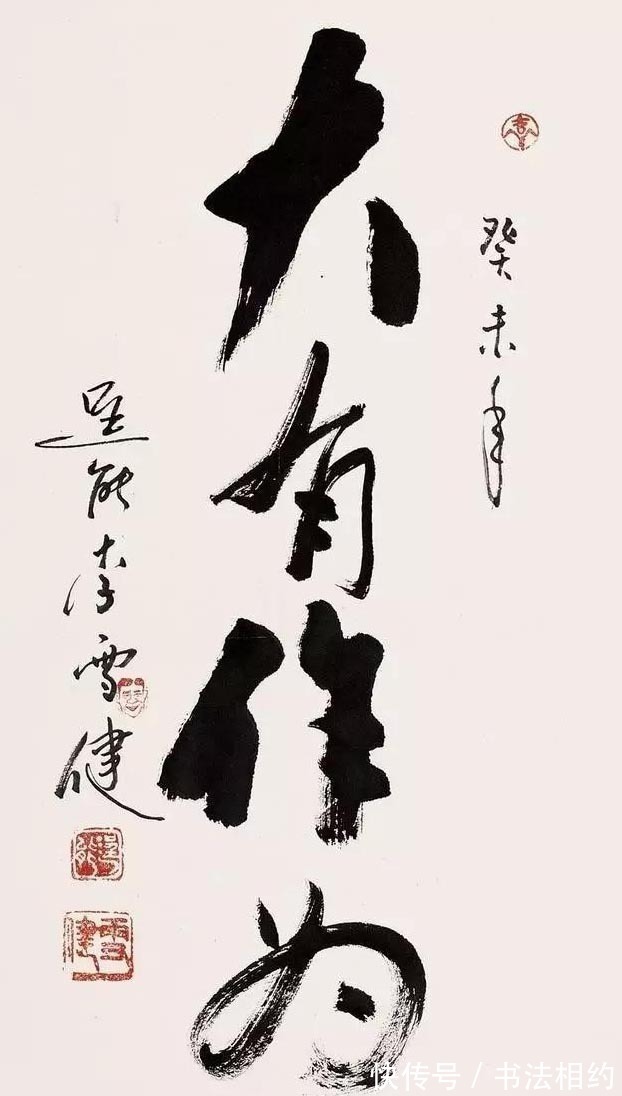 癸未年
大有作为
逞能李雪健
雪健
快传号 / 书法相约